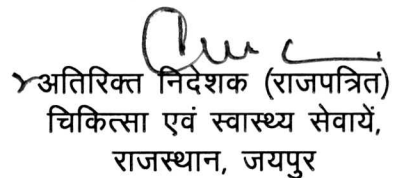 अतिरिक्त निदेशक (राजपत्रित)
चिकित्सा एवं स्वास्थ्य सेवायें,
राजस्थान, जयपुर